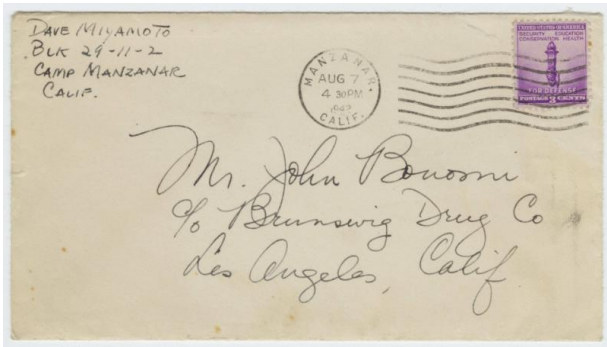 DAVE MIYAMOTO
BLK 29-11-2
CAMP MANZANAR
CALIF.
MANZANAR.
AUG 7
4 30PM
1942
CALIF.
UNITED STATES OF AMERICA
SECURITY EDUCATION
CONSERVATION HEALTH
FOR DEFENSE
POSTAGE 3 CENTS
Mr. John Bonomi
c/o Brunswig Drug Co
Los Angeles, Calif